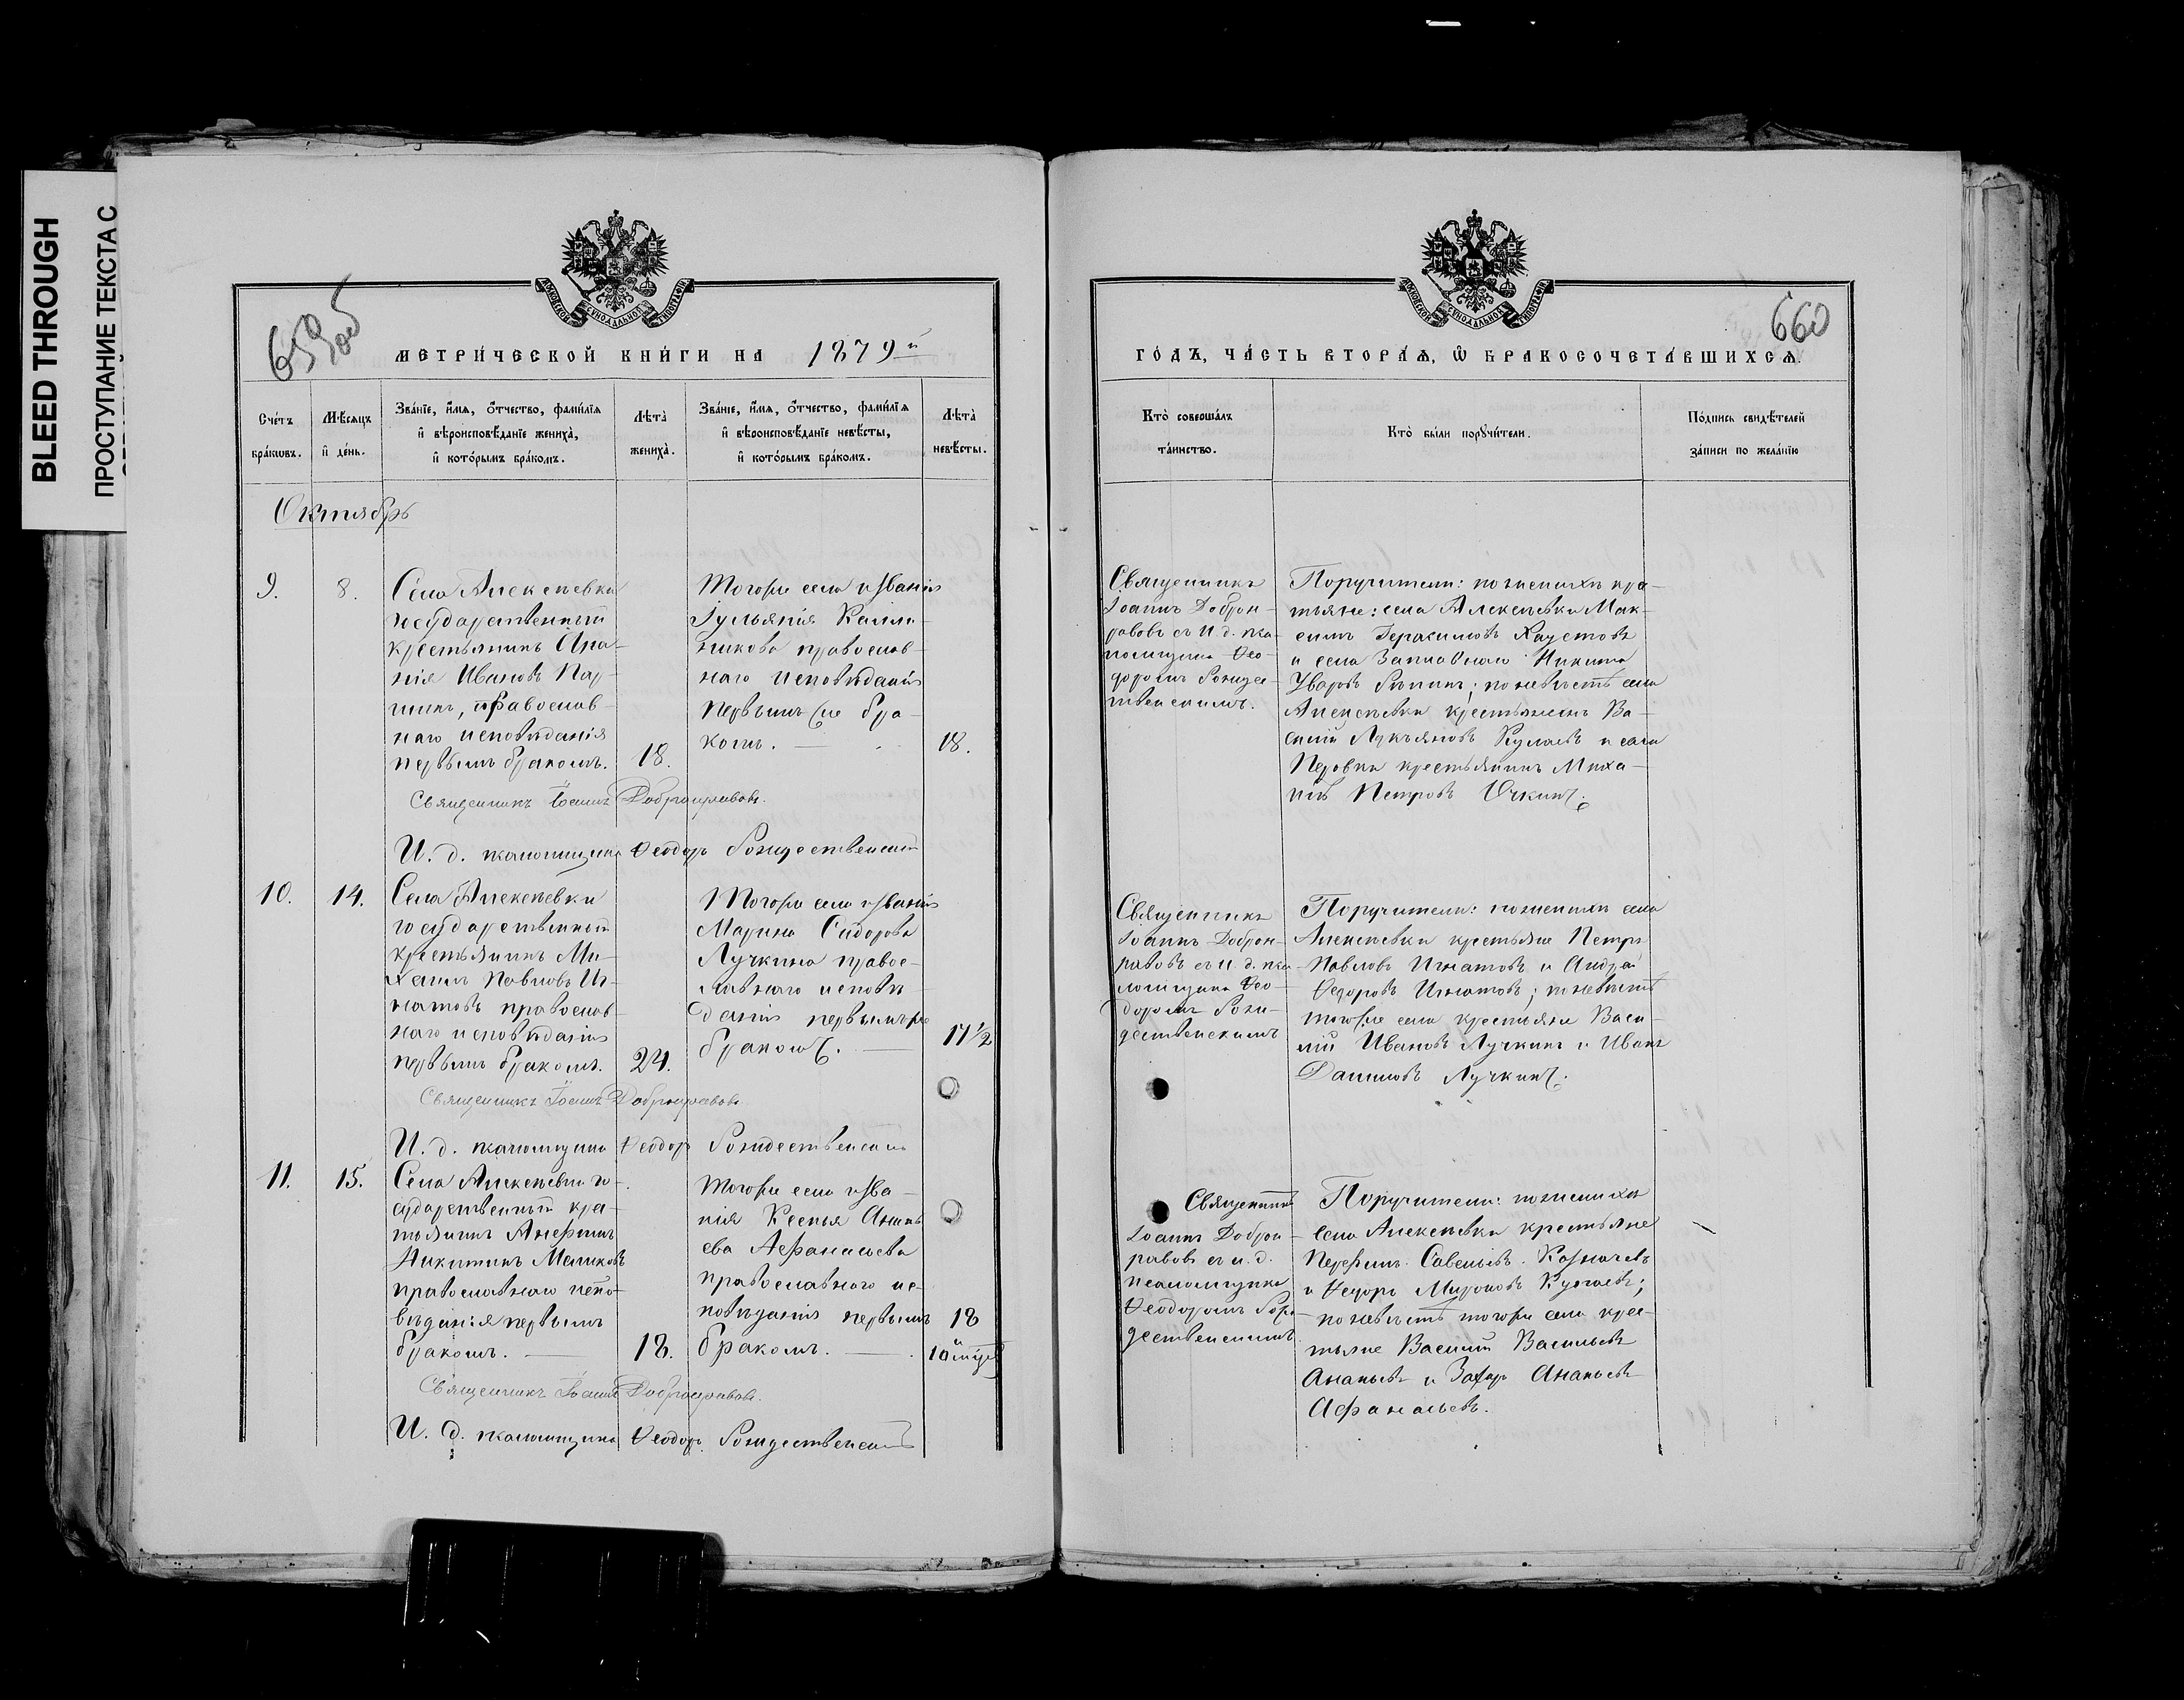 BLEED THROUGH
ПРОСТУПАНИЕ ТЕКСТА С
659об
МЕТРИ́ЧЕСКОЙ КНИ́ГИ НА 1879й
Сче́тъ бра́кωвъ.
Мѣ́сяцъ и҆ де́нь.
Зва́нїе, и҆́мя, ѻ҆́тчество, фами́лїя и҆ вѣроисповѣ́данїе жениха̀, и҆ кото́рымъ бра́комъ.
Лѣта̀ жениха̀.
Зва́нїе, и҆́мя, ѻ҆́тчество, фами́лїя и҆ вѣроисповѣ́данїе невѣ́сты, и҆ кото́рымъ бра́комъ.
Лѣта̀ невѣ́сты.
Октябрь
9.
8.
Села Алексѣевки
государственный
крестьянинъ Ана-
нія Ивановъ
православ-
наго исповѣданія
первымъ бракомъ.
18.
Тогоже села и званія
Іульянія
православ-
наго исповѣданія
первымъ же бра-
комъ.
18.
Священникъ Іоаннъ Добронравовъ.
И. д. псаломщика Ѳеодоръ Рождественскій
10.
14.
Села Алексѣевки
государственный
крестьянинъ Ми-
хаилъ Павловъ Иг-
натовъ православ-
наго исповѣданія
первымъ бракомъ.
24.
Тогоже села и званія
Марина Сидорова
Лучкина правос-
лавнаго исповѣ-
данія первымъ же
бракомъ.
17 1/2
Священникъ Іоаннъ Добронравовъ
И. д. псаломщика Ѳеодоръ Рождественскій
11.
15.
Села Алексѣевки го-
сударственный крес-
тьянинъ
Никитинъ
православнаго испо-
вѣданія первымъ
бракомъ.
18.
Тогоже села и зва-
нія Ксенья Анань-
ева Афанасьева
православнаго ис-
повѣданія первымъ
бракомъ.
18
Священникъ Іоаннъ Добронравовъ.
И. д. псаломщика Ѳеодоръ Рождественскій
660
ГО́ДЪ, ЧА́СТЬ ВТОРА́Ѧ, Ѽ БРАКОСОЧЕТА́ВШИХСѦ.
Кто̀ соверша́лъ та́инство.
Кто̀ бы́ли порꙋчи́тели.
По́дпись свидѣ́телей за́писи по жела́нїю
Священникъ
Іоаннъ Доброн-
равовъ съ И. д. пса-
ломщика Ѳео-
доромъ Рождес-
твенскимъ.
Поручители: по женихѣ крес-
тьяне: села Алексѣевки Мак-
симъ Герасимовъ Хаустовъ
и села Никита
Уваровъ; по невѣстѣ села
Алексѣевки крестьянинъ Ва-
силій Лукьяновъ и села
крестьянинъ Миха-
илъ Петровъ Очкинъ.
Священникъ
Іоаннъ Доброн-
равовъ съ И. д. пса-
ломщика Ѳео-
доромъ Рож-
дественскимъ
Поручители: по женихѣ села
Алексѣевки крестьяне Петръ
Павловъ Игнатовъ и Андрей
Ѳедоровъ Игнатовъ; по невѣстѣ
тогоже села крестьяне Васи-
лій Ивановъ Лучкинъ и Иванъ
Даниловъ Лучкинъ.
Священникъ
Іоаннъ Доброн-
равовъ съ и. д.
псаломщика
Ѳеодоромъ Рож-
дественскимъ
Поручители: по женихѣ
села Алексѣевки крестьяне
Савельевъ Казначеевъ
и Ѳедоръ Мироновъ
по невѣстѣ тогоже села крес-
тьяне Василій Васильевъ
Ананьевъ и Захаръ Ананьевъ
Афанасьевъ.